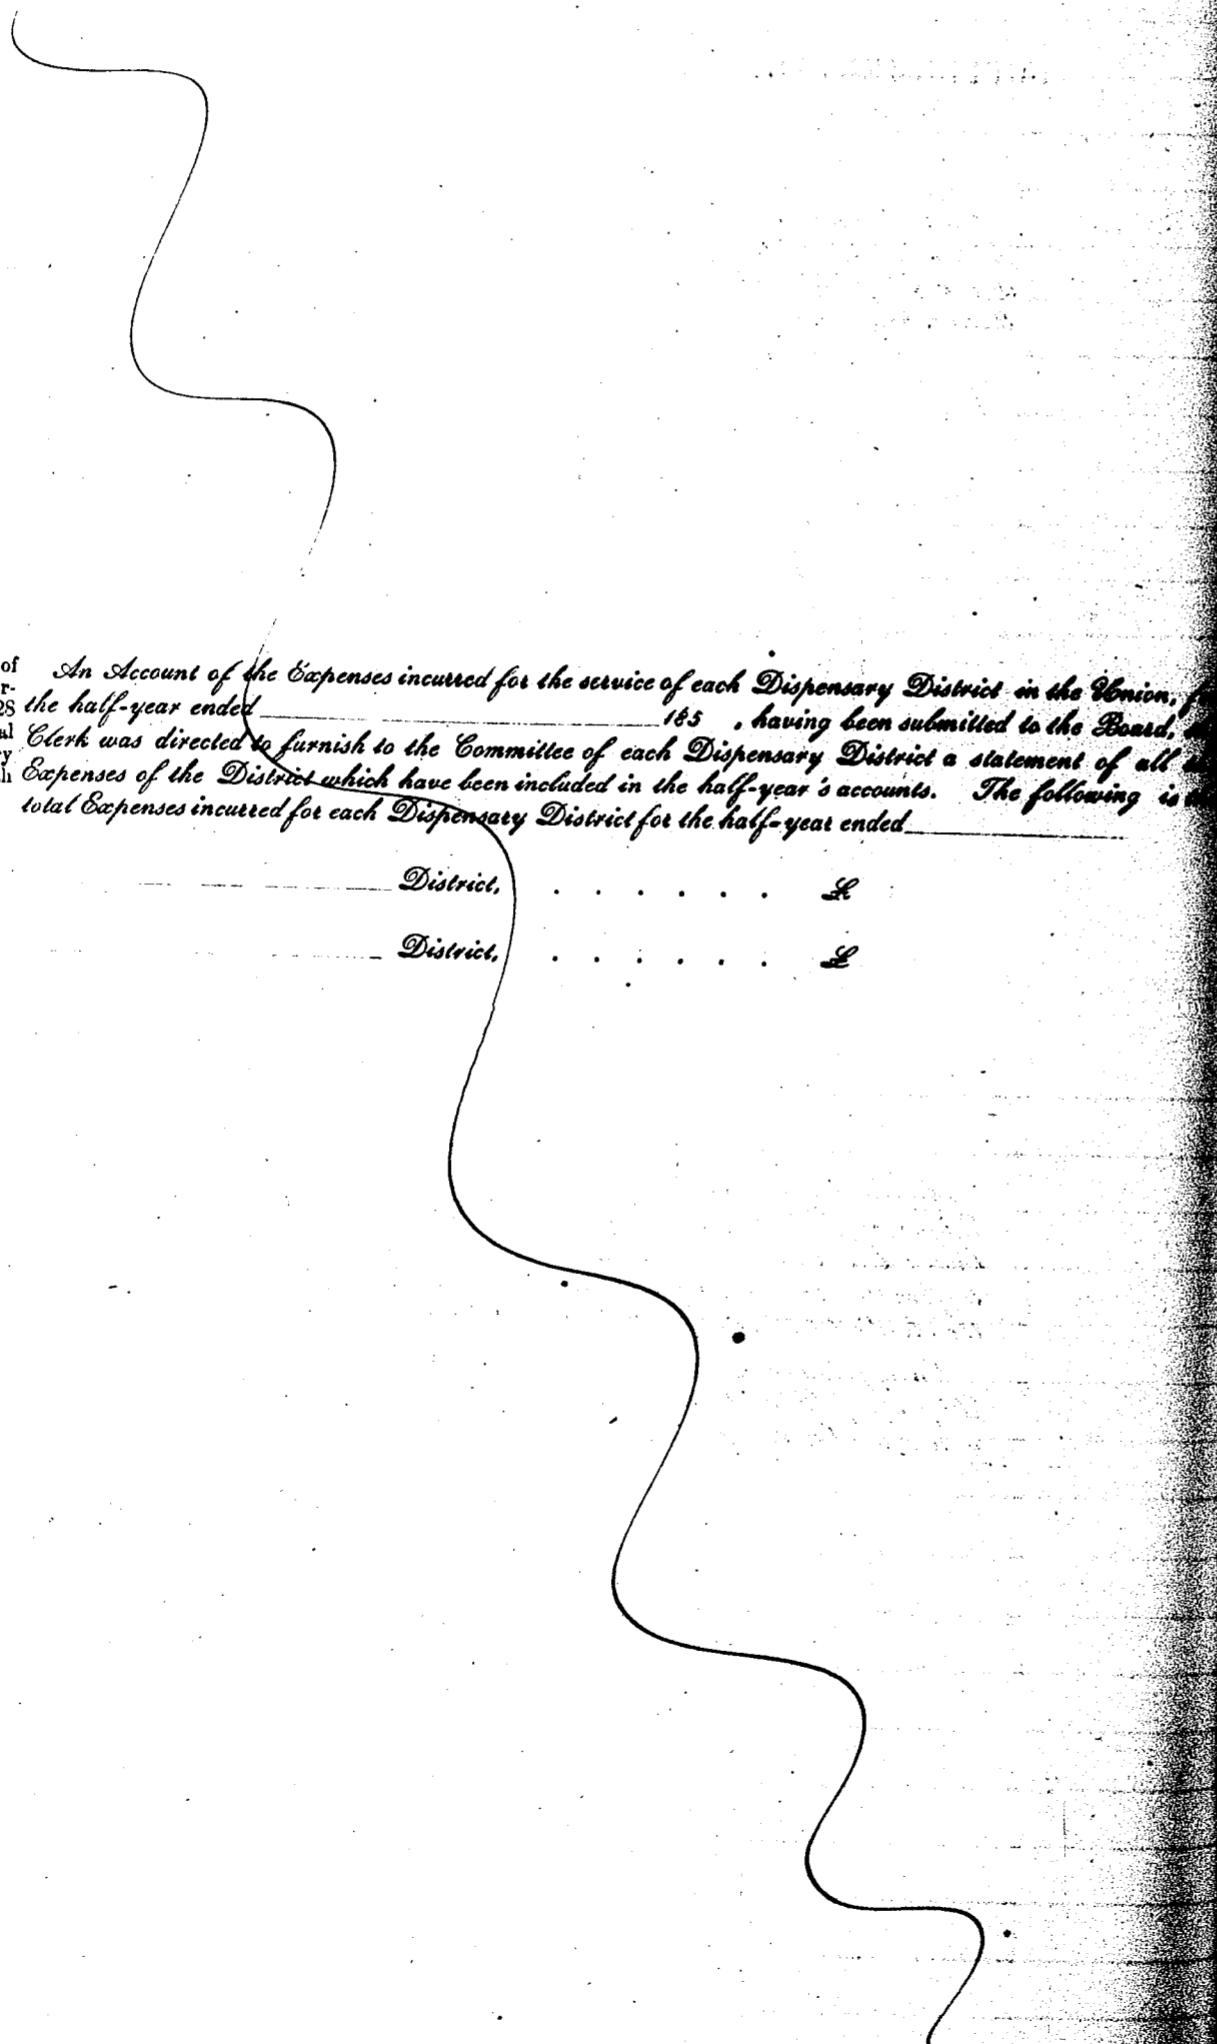 of
r-
28
al
y
h
An Account of the Expenses incurred for the service of each Dispensary District in the Union,
the half-year ended ________ 185 , having been submitted to the Board,
Clerk was directed to furnish to the Committee of each Dispensary District a statement of all
Expenses of the District which have been included in the half-year's accounts. The following is
total Expenses incurred for each Dispensary District for the half-year ended ________
________ District, . . . . . . £
________ District, . . . . . . £